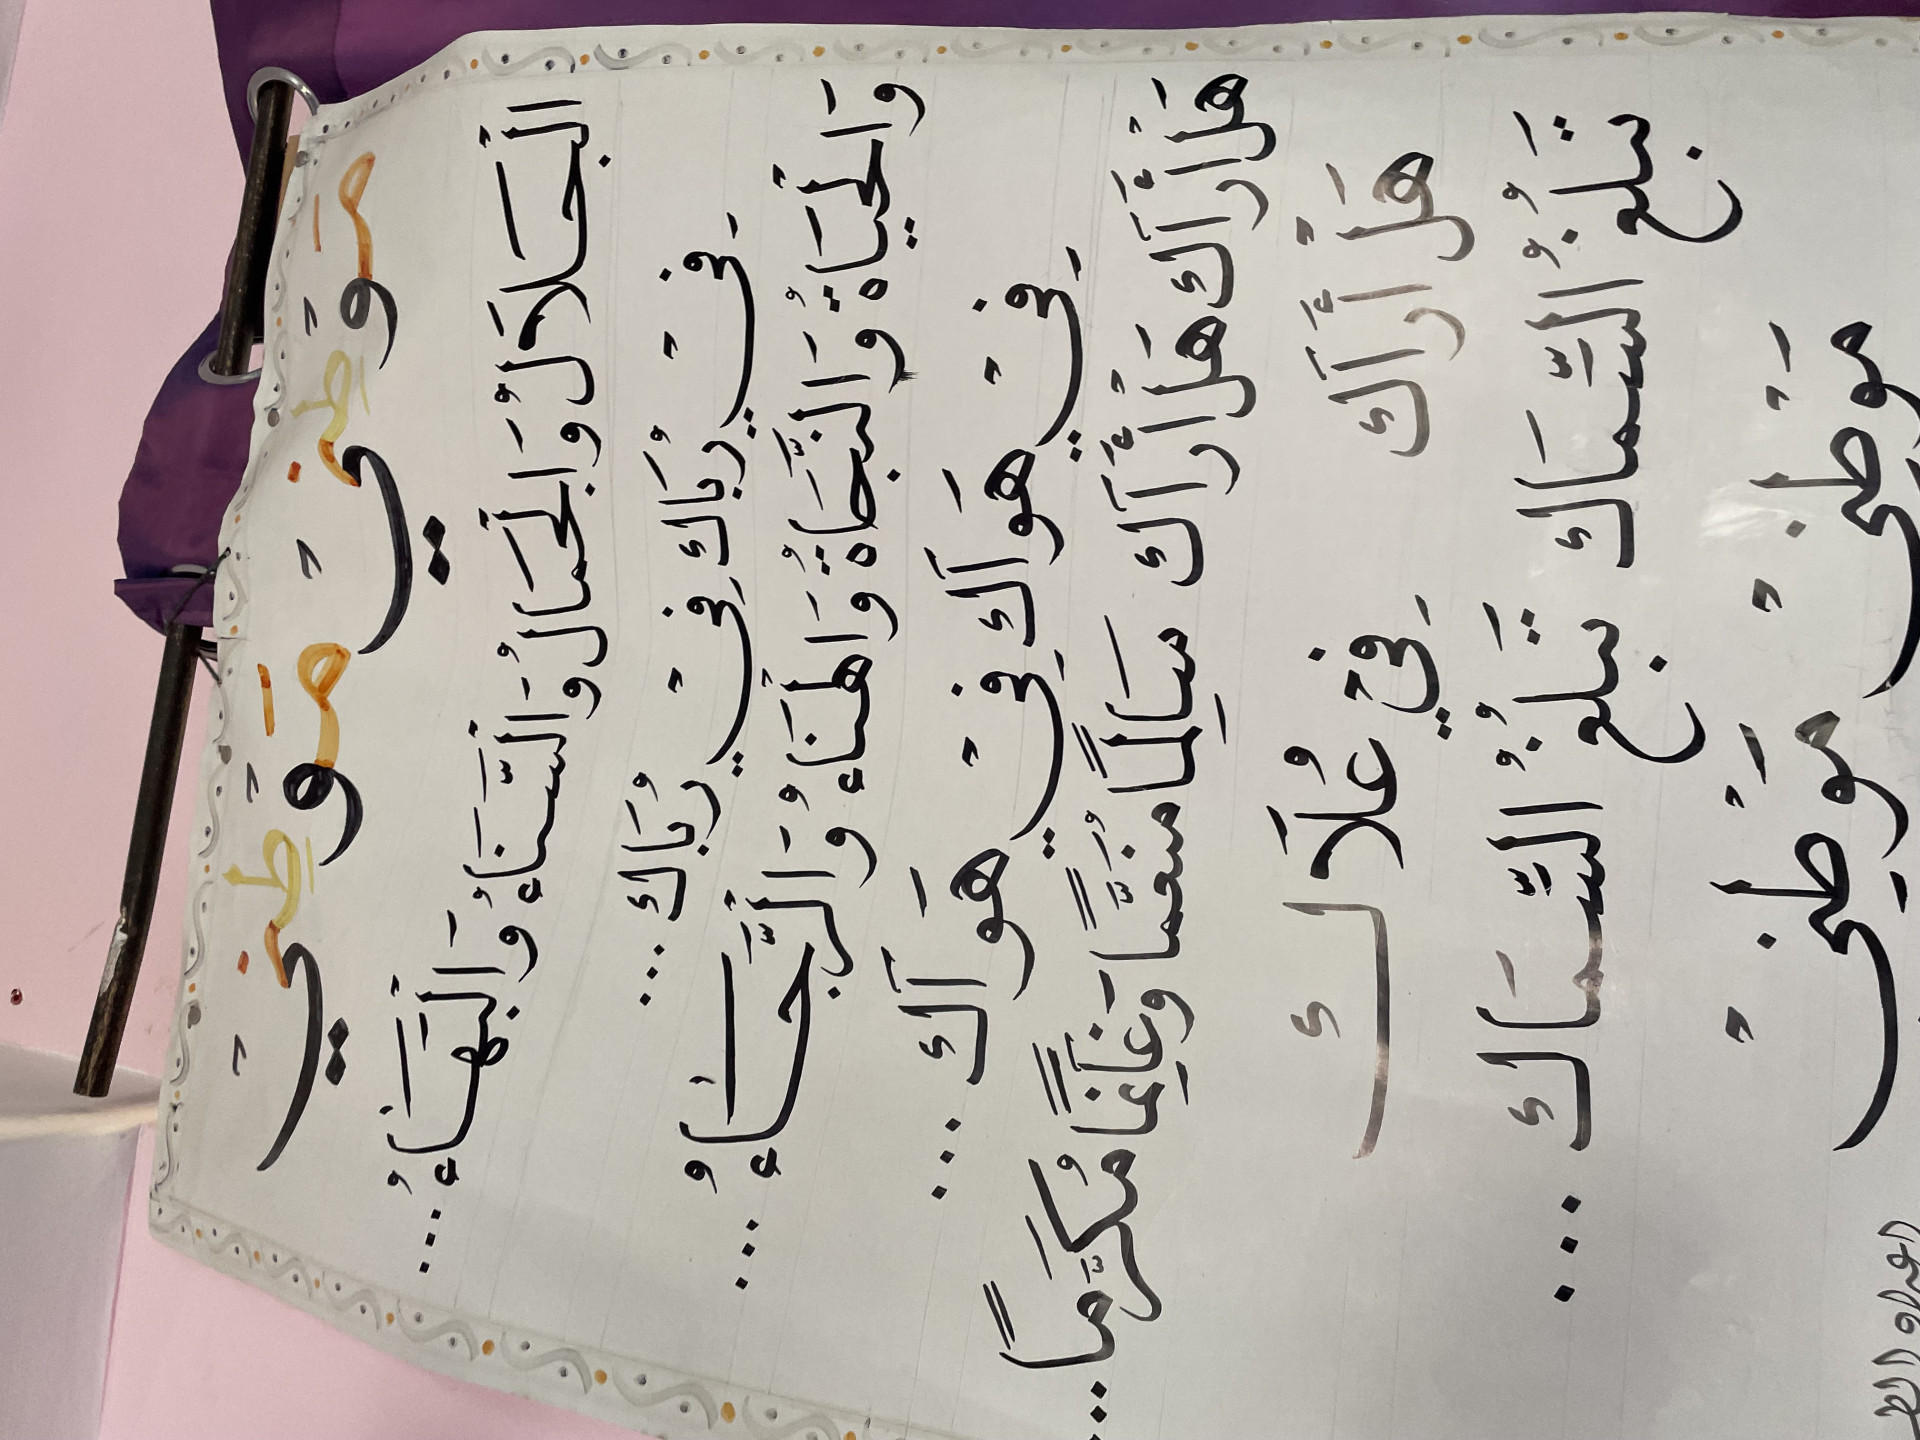 مَوْطِنِيْ مَوْطِنِيْ
الْجَلَالُ وَالْجَمَالُ وَالسَّنَاءُ وَالْبَهَاءُ...
فِيْ رُبَاكَ فِيْ رُبَاكَ...
وَالْحَيَاةُ وَالنَّجَاةُ وَالْهَنَاءُ وَالرَّجَاءُ...
فِيْ هَوَاكَ فِيْ هَوَاكَ...
هَلْ أَرَاكَ هَلْ أَرَاكَ سَالِمًا مُنَعَّمًا وَغَانِمًا مُكَرَّمًا...
هَلْ أَرَاكَ فِيْ عُلَاكَ
تَبْلُغُ السِّمَاكَ تَبْلُغُ السِّمَاكَ...
مَوْطِنِيْ مَوْطِنِيْ